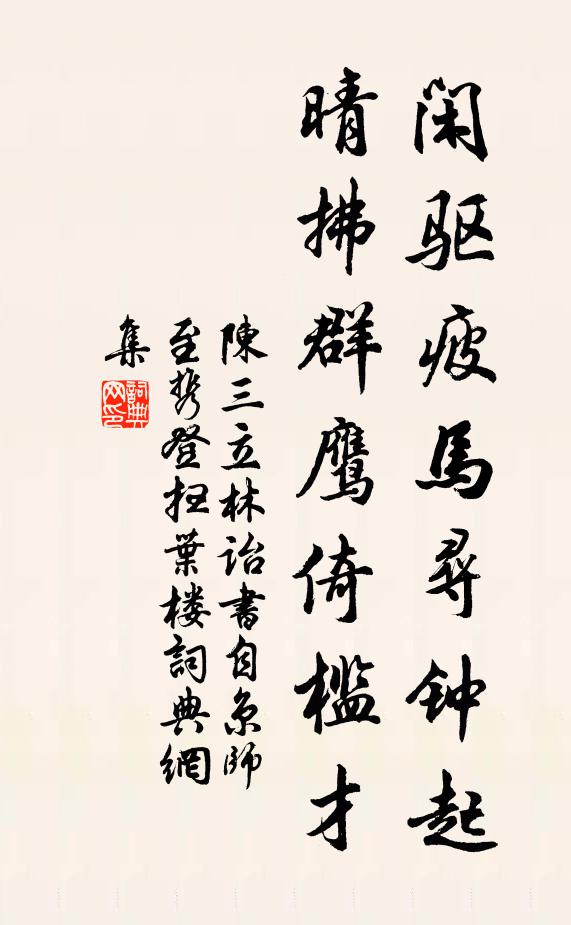 闲驱疲馬尋钟起
晴拂群鹰倚槛才
陳三立林诒書自京師
至携登扫葉楼詞典網
集
詞典
网印